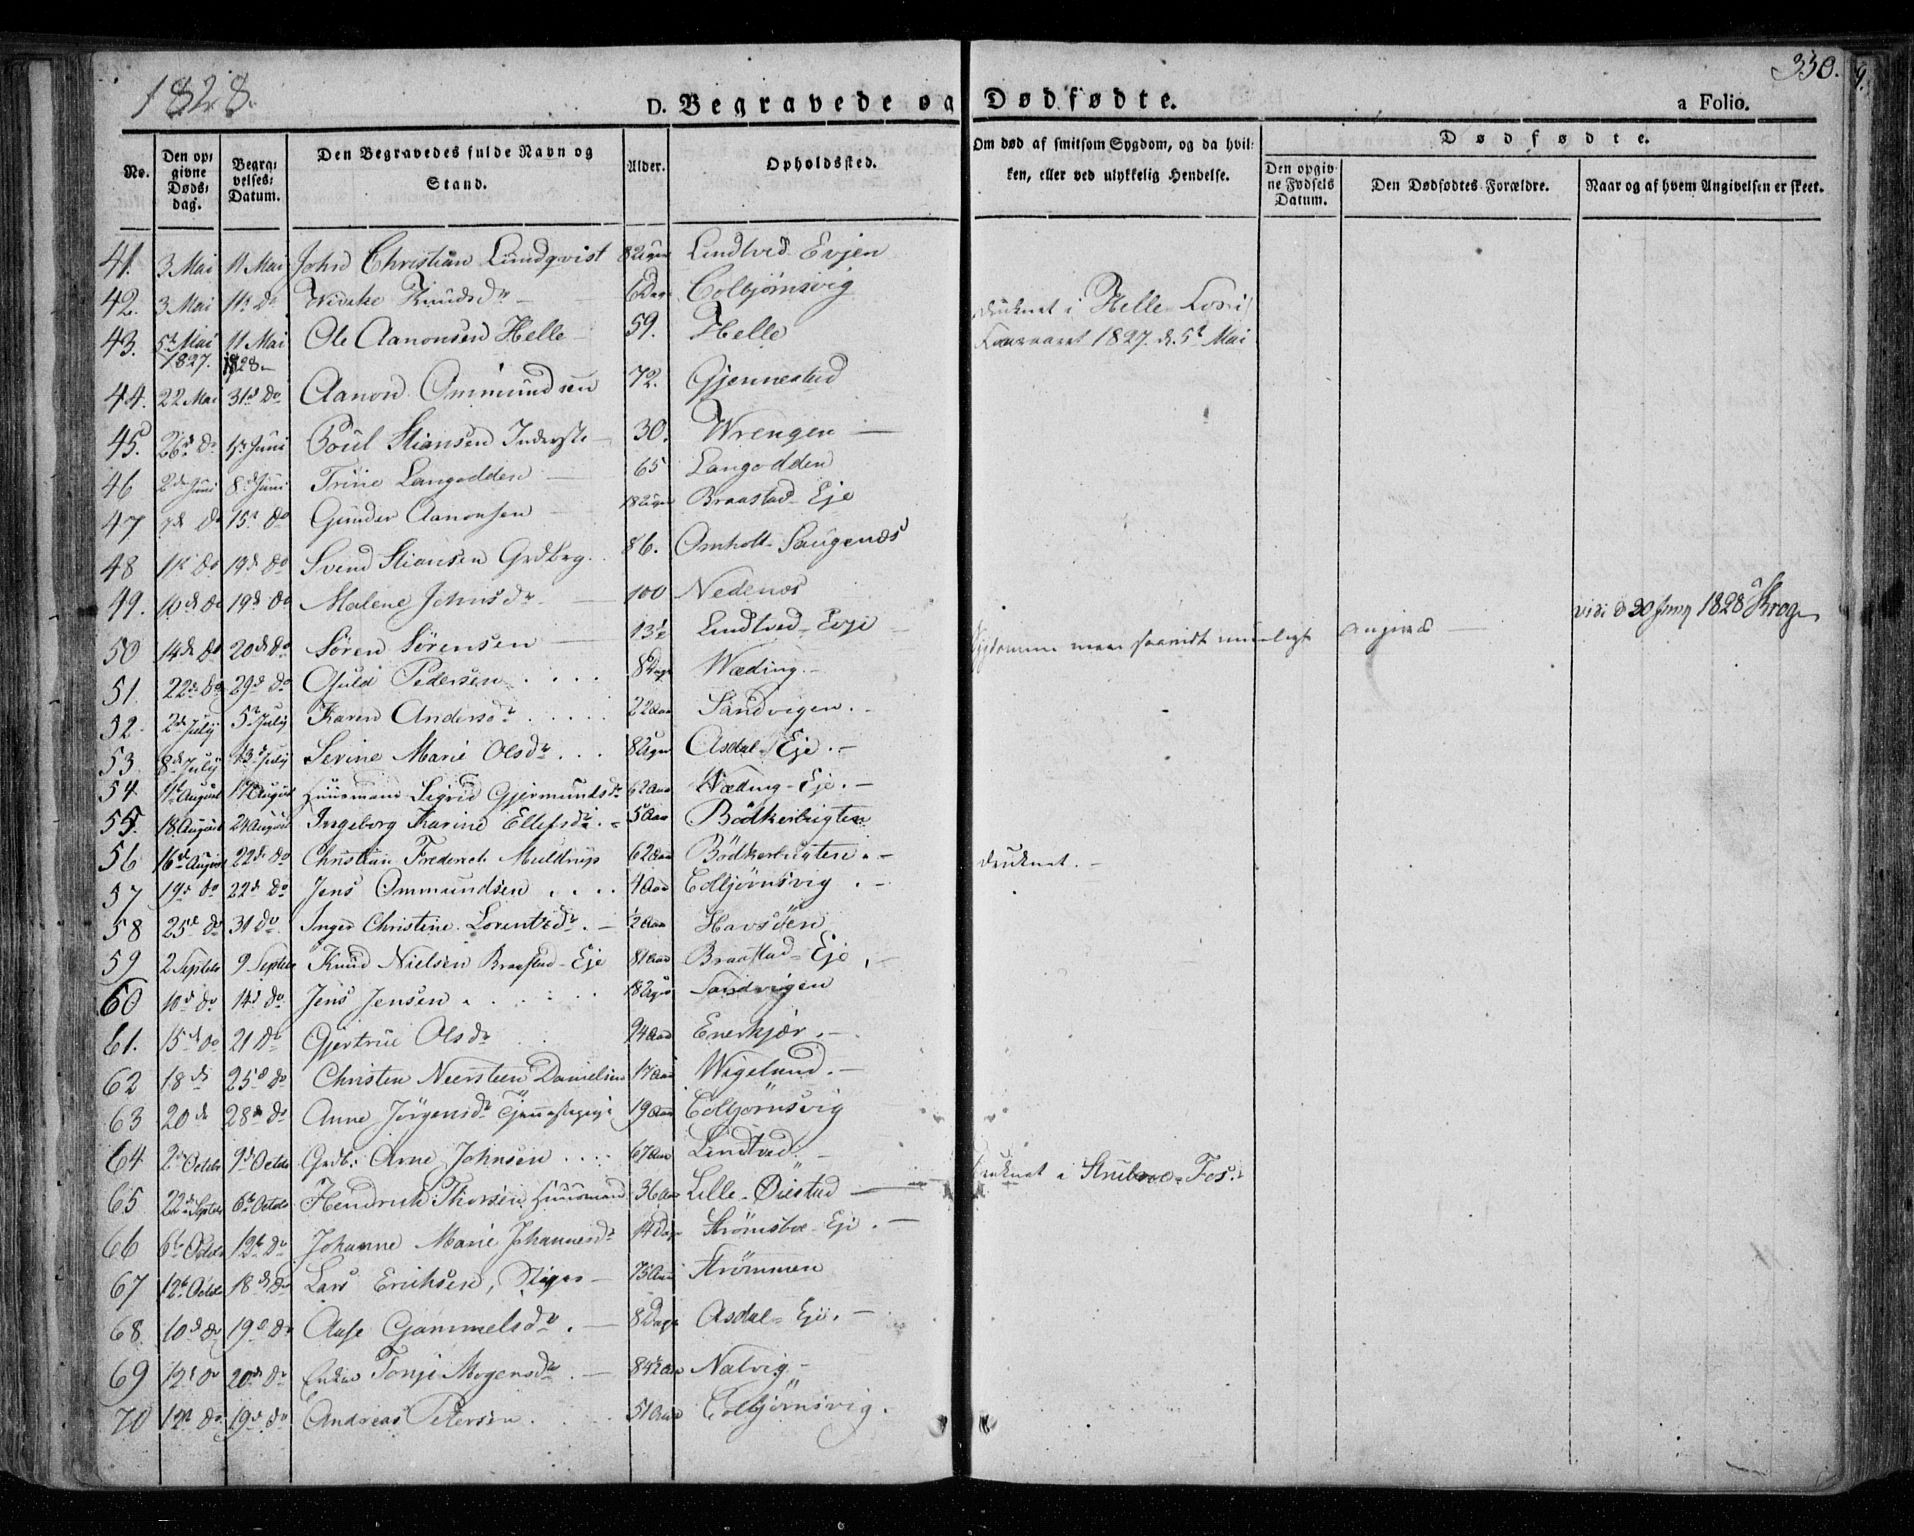 1828.
350.
D. Begravede og Dødfødte.
a Folio.
No.
Den op:givne Døds:dag.
Begra:velses:Datum.
Den Begravedes fulde Navn og Stand.
Alder.
Opholdssted.
Om død af smitsom Sygdom, og da hvil:ken, eller ved ulykkelig Hendelse.
Dødfødte.
Den opgiv:ne Fødsels Datum.
Den Dødfødtes Forældre.
Naar og af hvem Angivelsen er skeet.
41. 3 Mai 11 Mai John Christian Lundqvist 8 Uger Lindtved Evjen
42. 3 Mai 11 do Knudsdr 6 Dage Colbjørnsvig
43. 5t Mai 1827. 11 Mai 1828 Ole Aanonsen Helle 59. Helle druknet i Helle Foss i 1827 d. 5t Mai
44. 22 Mai 31 do Aanon Ommundsen 72. Gjennestad
45. 26 do 1 Juni Poul Stiansen 30. Wrengen
46 2d Juni 8d Juni Trine Langodden 65 Langodden
47 do 15 do Gunder Aanonsen 18 Uger Braastad Eje
48 11 do 19d do Svend Stiansen Grdbrg. 86. Omholt Saugenæs
49. 10d do 19d do Malene Johnsdr 100 Nedenæs
50 14d do 20d do Søren Sørensen 13½ Lindtved Eje
vidi d 30 Juny 1828 Krog
51. 22d do 29d do Pedersen 8 Dage Wæding
52. 2d July 5t July Karen Andersdr 22 Aar Sandvigen
53. 8d July 13d July Serine Marie Olsdr 8 Uger Asdal Eje
54. 11t August 17 August Sigrid Gjermundsdr 62 Aar Wæding Eje
55. 18 August 24 August Ingeborg Karine Ellefsdr 5 Aar Bödkerbugten
56 16d August 22d do Christian Frederich Muldrup 62 Aar Bödkerbugten druknet.
57 19d do 22d do Jens Ommundsen 4 Aar Colbjørnsvig
58 25d do 31 do Inger Christine Lorentzdr ½ Aar Havsöen
59 2 Septbr 9 Septbr Knud Nielsen Braastad Eje 81 Aar Braastad Eje
60 10d do 14d do Jens Jensen 18 Uger Sandvigen
61. 15d do 21 do Gjertrue Olsdr 94 Aar Enerkjær
62 18d 25d do Christen Neersteen Danielsen 17 Aar Wigelund
63 20d 28d do Anne Jörgensdr 19 Aar Colbjörnsvig
64 2d Octbr 9d Octbr Grdb: Arne Johnsen 67 Aar Lindtved
65 22d Septbr 6t Octbr Hendrich Thorsen Huusmand 36 Aar Lille Öiestad druknet i Strubroe Fos.
66 6t Octbr 12t do Johanne Marie Johannesdr 14 Dage Strømsboe Eje
67 12t Octbr 18d do Lars Erichsen, 73 Aar Strømmen
68. 10d do 19d do Aase Gammelsdr 8 Dage Asdal Eje
69 12d do 20d do Enke Tonje Mogensdr 84½ Aar Natvig
70 12d do 19d do Andreas Petersen 51 Aar Colbjörnsvig